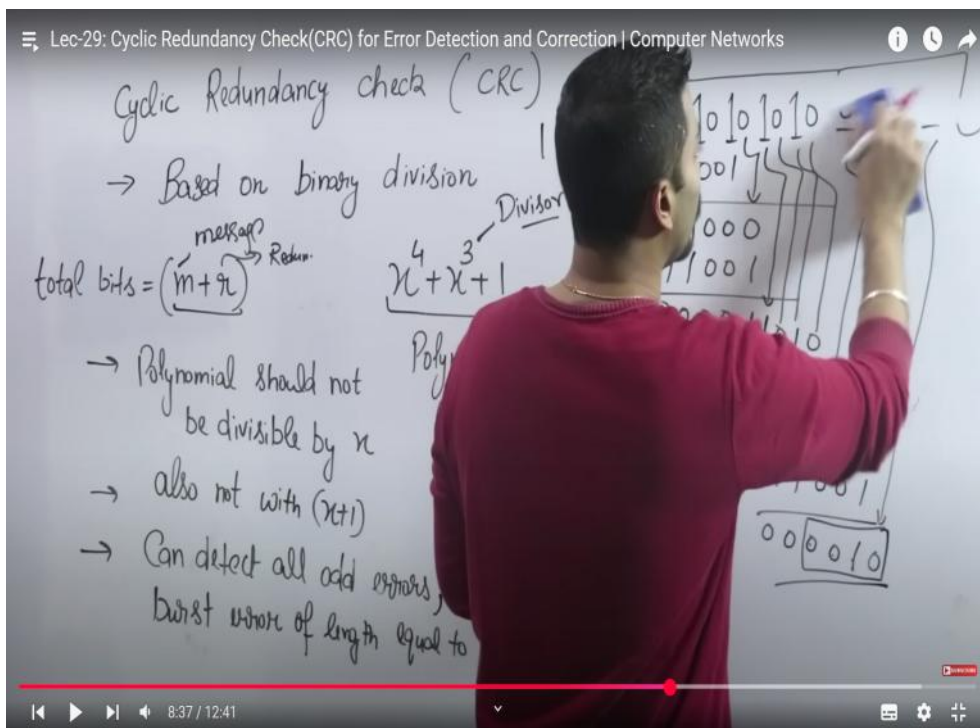 Lec-29: Cyclic Redundancy Check(CRC) for Error Detection and Correction | Computer Networks
Cyclic Redundancy check (CRC)
→ Based on binary division
message
Redun.
total bits = (m+r)
Divisor
x⁴+x³+1
→ Polynomial should not
be divisible by x
→ also not with (x+1)
→ Can detect all odd errors,
burst error of length equal to
10101010
001
000
1001
10
001
000010
SUBSCRIBE
8:37 / 12:41